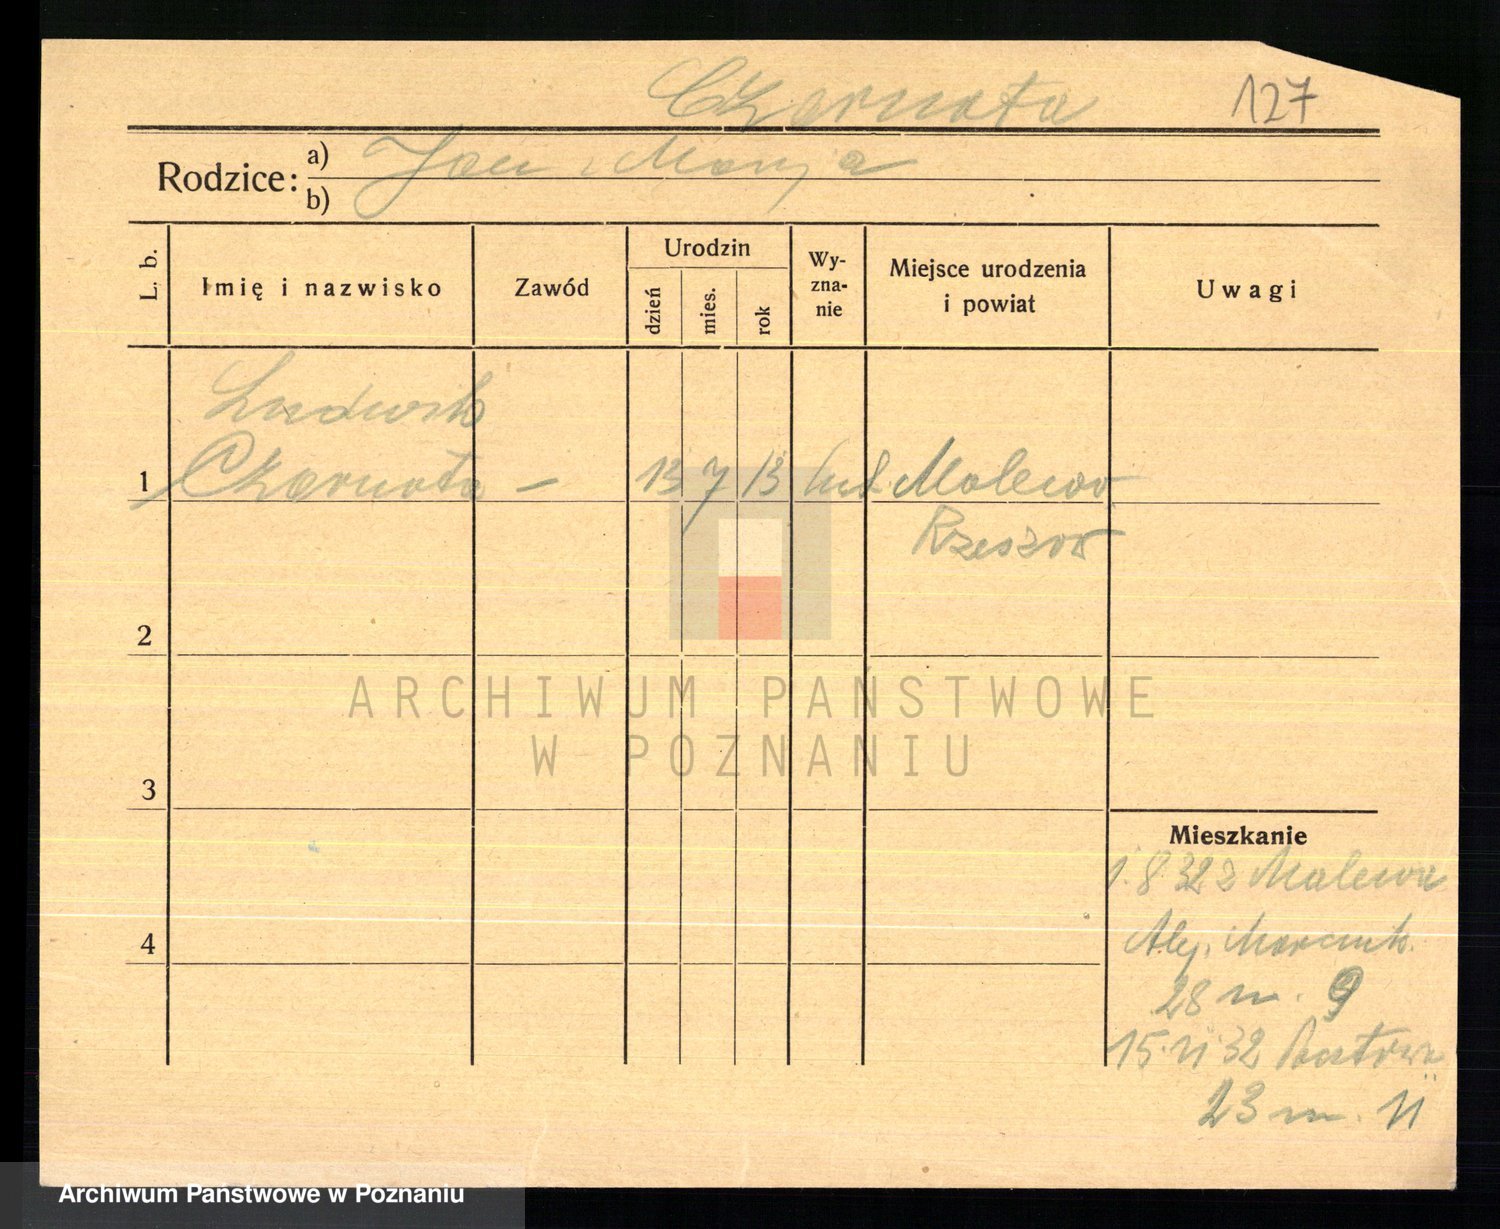 Czarnota 127
Rodzice: a) Jan i Marja
b)
L. b. Imię i nazwisko Zawód Urodzin dzień mies. rok Wy-zna-nie Miejsce urodzenia i powiat Uwagi
Ludwik
1 Czarnota — 13 7 13 Malewo
Rzeszow
2
ARCHIWUM PAŃSTWOWE
W POZNANIU
3
Mieszkanie
1.8.32 z Malewa
4 Alej. Marcink.
28 m. 9
15.11.32
23 m. 11
Archiwum Państwowe w Poznaniu